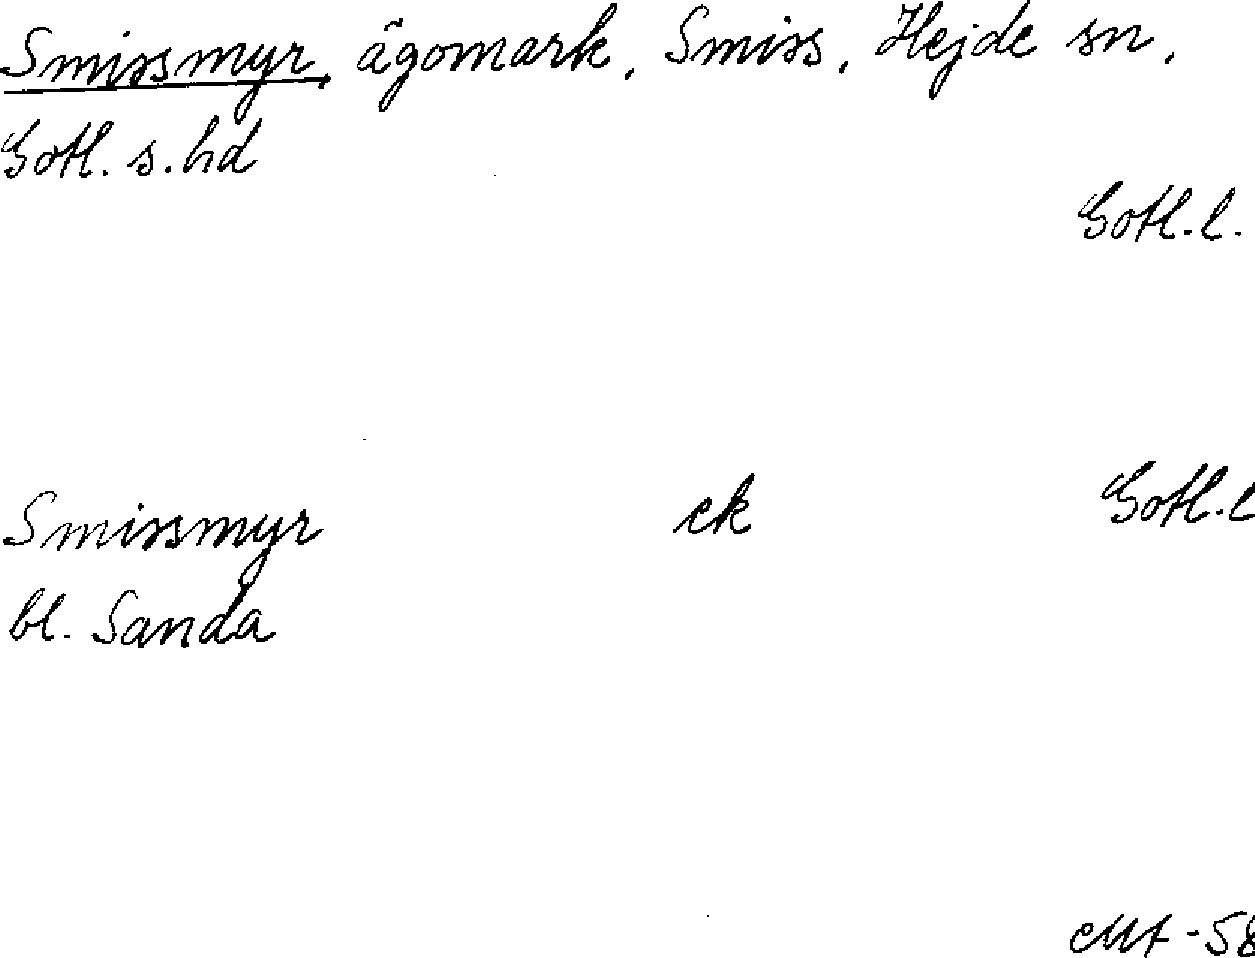 Smissmyr, ägomark, Smiss, Hejde sn,
Gotl. s. hd
Gotl. l.
Smissmyr ek Gotl. l
bl. Sanda
-58